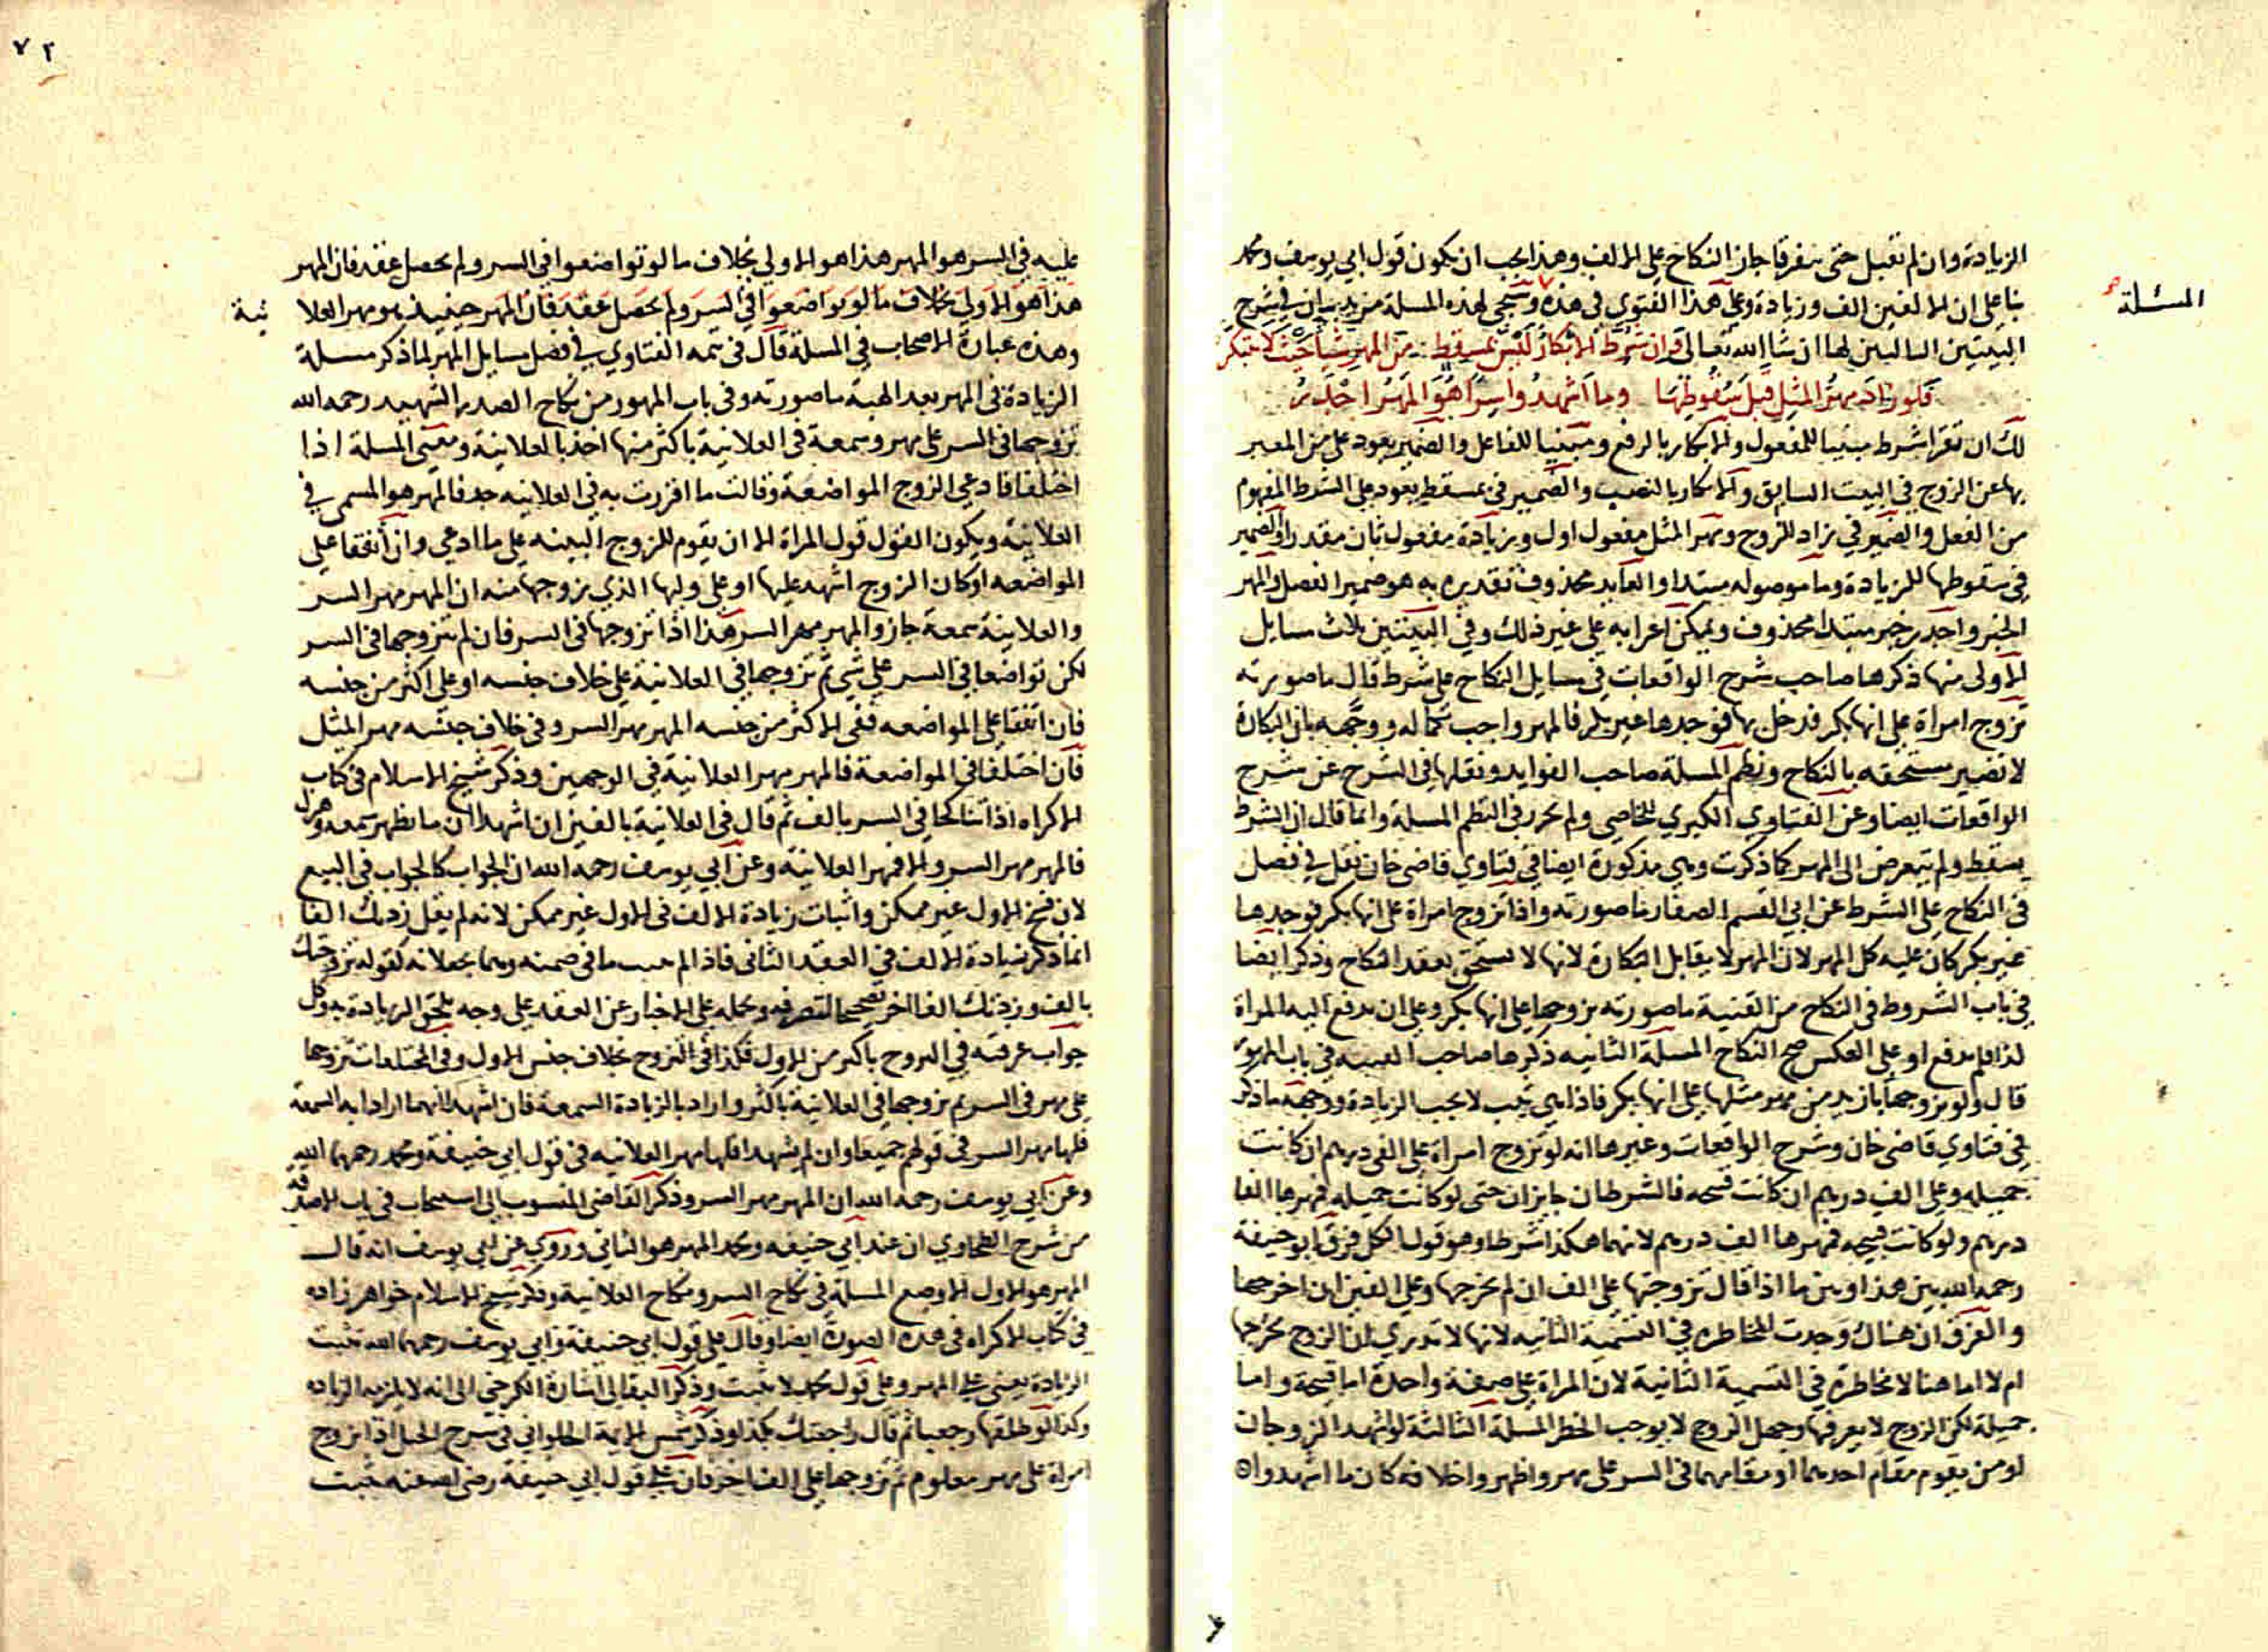 الزيادة وان لم تقبل حتى يتفرقا جاز النكاح على الالف وهذا يجب ان يكون قول ابي يوسف ومحمد
بنا على ان الالفين الف وزيادة وعلى هذا الفتوى في هذه وسيجي لهذه المسلة مزيد بيان في شرح
المسئلة
البيتين التاليين لها ان شا الله تعالى وان شرط الابكار ليس بمسقط من المهر شيا حيث لا تبكر
فلو زاد مهر المثل قبل سقوطها وما اشهدوا سرا هو المهر اجدر
لك ان تقرا شرط مبنيا للمفعول والابكار بالرفع ومبنيا للفاعل والضمير يعود على من المعبر
بها عن الزوج في البيت السابق والابكار بالنصب والضمير في بمسقط يعود على الشرط المفهوم
من الفعل والضمير في زاد للزوج ومهر المثل مفعول اول وزيادة مفعول ثان مقدر والضمير
في سقوطها للزيادة وما موصوله مبتدا والعايد محذوف تقديره به هو ضمير الفصل والمهر
الخبر واجدر خبر مبتدا محذوف ويمكن اعرابه على غير ذلك وفي البيتين ثلاث مسايل
الاولى منها ذكرها صاحب شرح الواقعات في مسايل النكاح على شرط قال ما صورته
تزوج امراة على انها بكر فدخل بها فوجدها غير بكر فالمهر واجب بكماله ووجهه بان البكارة
لا تصير مستحقه بالنكاح ونظم المسلة صاحب الفوايد ونقلها في الشرح عن شرح
الواقعات ايضا وعن الفتاوي الكبري للخاصي ولم يحرر في النظم المسلة وانما قال ان الشرط
يسقط ولم يتعرض الى المهر كما ذكرت وهي مذكورة ايضا في فتاوي قاضي خان نقل في فصل
في النكاح على الشرط عن ابي القسم الصفار ما صورته واذا تزوج امراة على انها بكر فوجدها
غير بكر كان عليه كل المهر لان المهر لا يقابل البكارة لانها لا تستحق بعقد النكاح وذكر ايضا
في باب الشروط في النكاح من القنية ما صورته تزوجها على انها بكر وعلى ان يدفع اليه المراة
كذا فلم يدفع او على العكس صح النكاح المسلة الثانيه ذكرها صاحب القنيه في باب المهور
قال ولو تزوجها بازيد من مهر مثلها على انها بكر فاذا هي ثيب لا يجب الزيادة ووجهه ما ذكر
في فتاوي قاضي خان وشرح الواقعات وغيرها انه لو تزوج امراة على الفي درهم ان كانت
جميله وعلى الف درهم ان كانت قبيحه فالشرطان جايزان حتى لو كانت جميله فمهرها الفا
درهم ولو كانت قبيحه فمهرها الف درهم لانهما هكذا شرطا وهو قول الكل فرق ابو حنيفة
رحمه الله بين هذا وبين ما اذا قال تزوجتها على الف ان لم يخرجها وعلى الفين ان اخرجها
والفرق ان هناك وجدت المخاطره في التسمية الثانيه لانها لا تدري ان الزوج يخرجها
ام لا اما هنا لا مخاطرة في التسمية الثانية لان المراة على صفة واحدة اما قبيحة واما
جميلة لكن الزوج لا يعرفها وجهل الزوج لا يوجب الخطر المسلة الثالثة لو اشهد الزوجان
او من يقوم مقام احدهما او مقامهما في السر على مهر واظهروا خلافه كان ما اشهدوا
٧٢
عليه في السر هو المهر هذا هو الاولي بخلاف ما لو تواضعوا في السر ولم يحصل عقد فان المهر
هذا هو الاولى بخلاف ما لو تواضعوا في السر ولم يحصل عقد فان المهر حينيذ هو مهر العلا نية
وهذه عبارة الاصحاب في المسلة قال في تتمه الفتاوي في فصل مسايل المهر لما ذكر مسلة
الزيادة في المهر بعد الهبة ما صورته وفي باب المهور من نكاح الصدر الشهيد رحمه الله
تزوجها في السر على مهر وسمعة في العلانية باكثر منها اخذ بالعلانية ومعنى المسلة اذا
اختلفا فادعى الزوج المواضعة وقالت ما اقررت به في العلانيه جد فالمهر هو المسمى في
العلانية ويكون القول قول المراة الا ان يقوم للزوج البينه على ما ادعي وان اتفقا على
المواضعه او كان الزوج اشهد عليها او على وليها الذي يزوجها منه ان المهر مهر السر
والعلانية سمعة جاز والمهر مهر السر هذا اذا تزوجها في السر فان لم يتزوجها في السر
لكن تواضعا في السر على شي ثم تزوجها في العلانية على خلاف جنسه او على اكثر من جنسه
فان اتفقا على المواضعه ففي الاكثر من جنسه المهر مهر السر وفي خلاف جنسه مهر المثل
فان اختلفا في المواضعة فالمهر مهر العلانية في الوجهين وذكر شيخ الاسلام في كتاب
الاكراه اذا تناكحا في السر بالف ثم قال في العلانية بالفين ان اشهدا ان ما يظهر سمعه وهزل
فالمهر مهر السر والا فمهر العلانية وعن ابي يوسف رحمه الله ان الجواب كالجواب في البيع
لان فسخ الاول غير ممكن واثبات زيادة الالف في الاول غير ممكن لانه لم يقل زدتك الفا
انما ذكر زيادة الالف في العقد الثاني فاذا لم يثبت ما في ضمنه وهما يجعلانه كقوله تزوجتك
بالف وزدتك الفا اخر تصحيحا لتصرفه وبحمله على الاخبار عن العقد على وجه يلحق الزيادة به وكل
جواب عرفته في التزوج باكثر من الاول فكذا في التزوج بخلاف جنس الاول وفي المختلفات تزوجها
على مهر في السر ثم تزوجها في العلانية باكثر وارادا بالزيادة السمعة فان اشهدا انهما ارادا به السمعة
فلها مهر السر في قولهم جميعا وان لم يشهدا فلها مهر العلانيه في قول ابي حنيفة ومحمد رحمهما الله
وعن ابي يوسف رحمه الله ان المهر مهر السر وذكر القاضي المنسوب الى اسبيجاب في باب الاصدقة
من شرح الطحاوي ان عند ابي حنيفه ومحمد المهر هو الثاني وروي عن ابي يوسف انه قال
المهر هو الاول الا وضع المسلة في نكاح السر ونكاح العلانية وذكر شيخ الاسلام خواهر زاده
في كتاب الاكراه في هذه الصورة ايضا وقال على قول ابي حنيفة وابي يوسف رحمهما الله تثبت
الزيادة يعني على المهر وعلى قول محمد لا تثبت وذكر البقالي اشارة الكرخي الى انه لا يلزمه الزياده
وكذا لو طلقها رجعيا ثم قال راجعتك بكذا وذكر شمس الايمة الحلواني في شرح الحيل اذا تزوج
امراة على مهر معلوم ثم تزوجها على الف اخر فان على قول ابي حنيفة رضي الله عنه تثبت